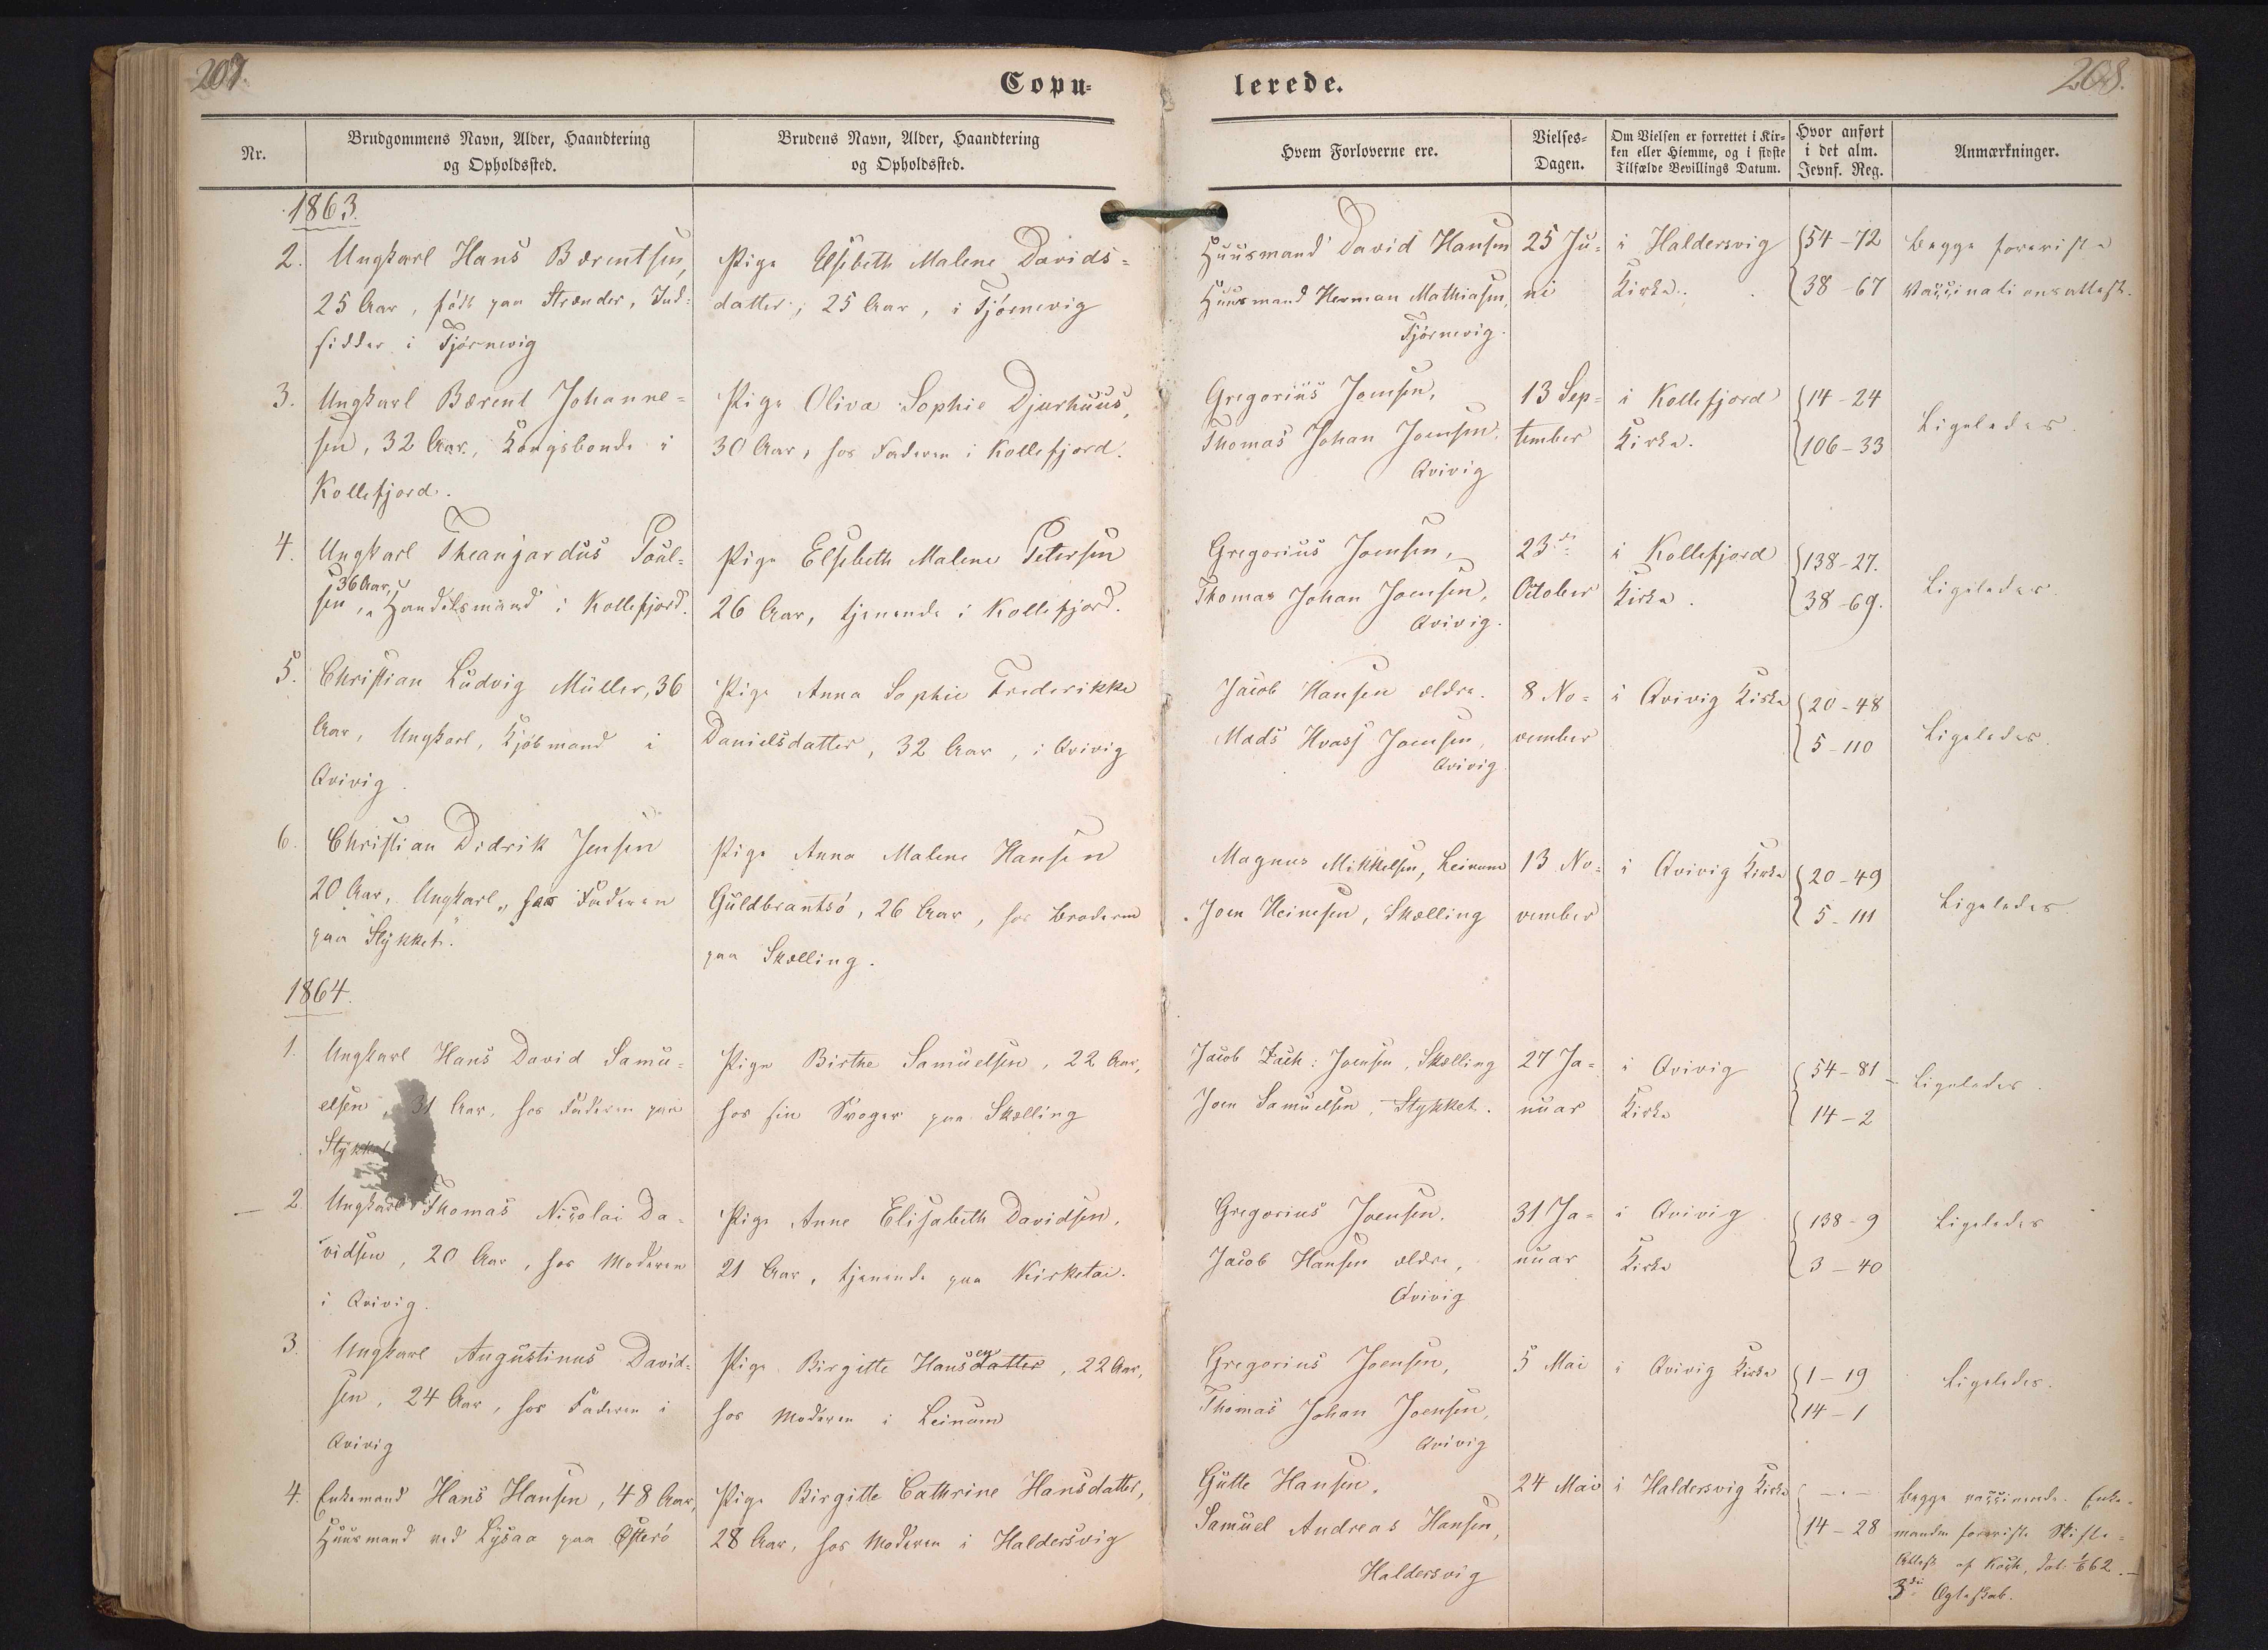 207.
208.
Copu-
lerede.
Nr.
Brudgommens Navn, Alder, Haandtering
og Opholdssted.
Brudens Navn, Alder, Haandtering
og Opholdssted.
Hvem Forloverne ere.
Vielses-
Dagen.
Om Vielsen er forrettet i Kir-
ken eller Hiemme, og i sidste
Tilfælde Bevillings Datum.
Hvor anført
i det alm.
Jevnf. Reg.
Anmærkninger.
1863.
2.
Ungkarl Hans Bærentsen,
25 Aar, født paa Strænder, Ind-
sidder i Tjörnevig
Pige Elsebeth Malene Davids-
datter, 25 Aar, i Tjörnevig
Huusmand David Hansen
Huusmand Herman Mathiasen,
Tjörnevig.
25 Ju-
ni
i Haldersvig
Kirke.
54-72
38-67
Begge foreviste
Vaccinationsattest.
3.
Ungkarl Bærent Johanne-
sen, 32 Aar, Kongsbonde i
Kollefjord.
Pige Oliva Sophie Djurhuus,
30 Aar, hos Faderen i Kollefjord.
Gregorius Joensen,
Thomas Johan Joensen,
Qvivig
13 Sep-
tember
i Kollefjord
Kirke.
14-24
106-33
Ligeledes.
4.
Ungkarl Theangardus Poul-
sen, 36 Aar, Handelsmand i Kollefjord.
Pige Elsebeth Malene Petersen
26 Aar, tjenende i Kollefjord.
Gregorius Joensen,
Thomas Johan Joensen,
Qvivig.
23de
October
i Kollefjord
Kirke.
138-27.
38-69.
Ligeledes.
5.
Christian Ludvig Müller, 36
Aar, Ungkarl, Kjøbmand i
Qvivig.
Pige Anna Sophie Frederikke
Danielsdatter, 32 Aar, i Qvivig
Jacob Hansen ældre.
Mads Hvass Joensen,
Qvivig.
8 No-
vember
i Qvivig Kirke
20-48
5-110
Ligeledes.
6.
Christian Didrik Jensen
20 Aar, Ungkarl, hos Faderen
paa "Stykket".
Pige Anna Malene Hansen
Guldbrantsö, 26 Aar, hos Broderen
paa Skælling.
Magnus Mikkelsen, Leinum
Joen Heinesen, Skælling
13 No-
vember
i Qvivig Kirke
20-49
5-111
Ligeledes
1864.
1.
Ungkarl Hans David Samu-
elsen, 31 Aar, hos Faderen paa
Stykket
Pige Birthe Samuelsen, 22 Aar,
hos sin Svoger paa Skælling
Jacob Zach: Joensen, Skælling
Joen Samuelsen, Stykket.
27 Ja-
nuar
i Qvivig
Kirke
54-81
14-2
Ligeledes.
2.
Ungkarl Thomas Nicolai Da-
vidsen, 20 Aar, hos Moderen
i Qvivig.
Pige Anne Elisabeth Davidsen,
21 Aar, tjenende paa Kirketai.
Gregorius Joensen.
Jacob Hansen ældre,
Qvivig
31 Ja-
nuar
i Qvivig
Kirke
138-9
3-40
Ligeledes
3.
Ungkarl Augustinus David-
sen, 24 Aar, hos Faderen i
Qvivig
Pige Birgitte Hansdatter en, 22 Aar,
hos Moderen i Leinum
Gregorius Joensen,
Thomas Johan Joensen,
Qvivig
5 Mai
i Qvivig Kirke
1-19
14-1
Ligeledes.
4.
Enkemand Hans Hansen, 48 Aar,
Huusmand ved Lysaa paa Østerö
Pige Birgitte Cathrine Hansdatter,
28 Aar, hos Moderen i Haldersvig
Gutte Hansen,
Samuel Andreas Hansen,
Haldersvig
24 Mai
i Haldersvig Kirke
-.-
14-28
Begge vaccinerede. Enke-
manden foreviste Skifte-
Attest af
3die Ægteskab.